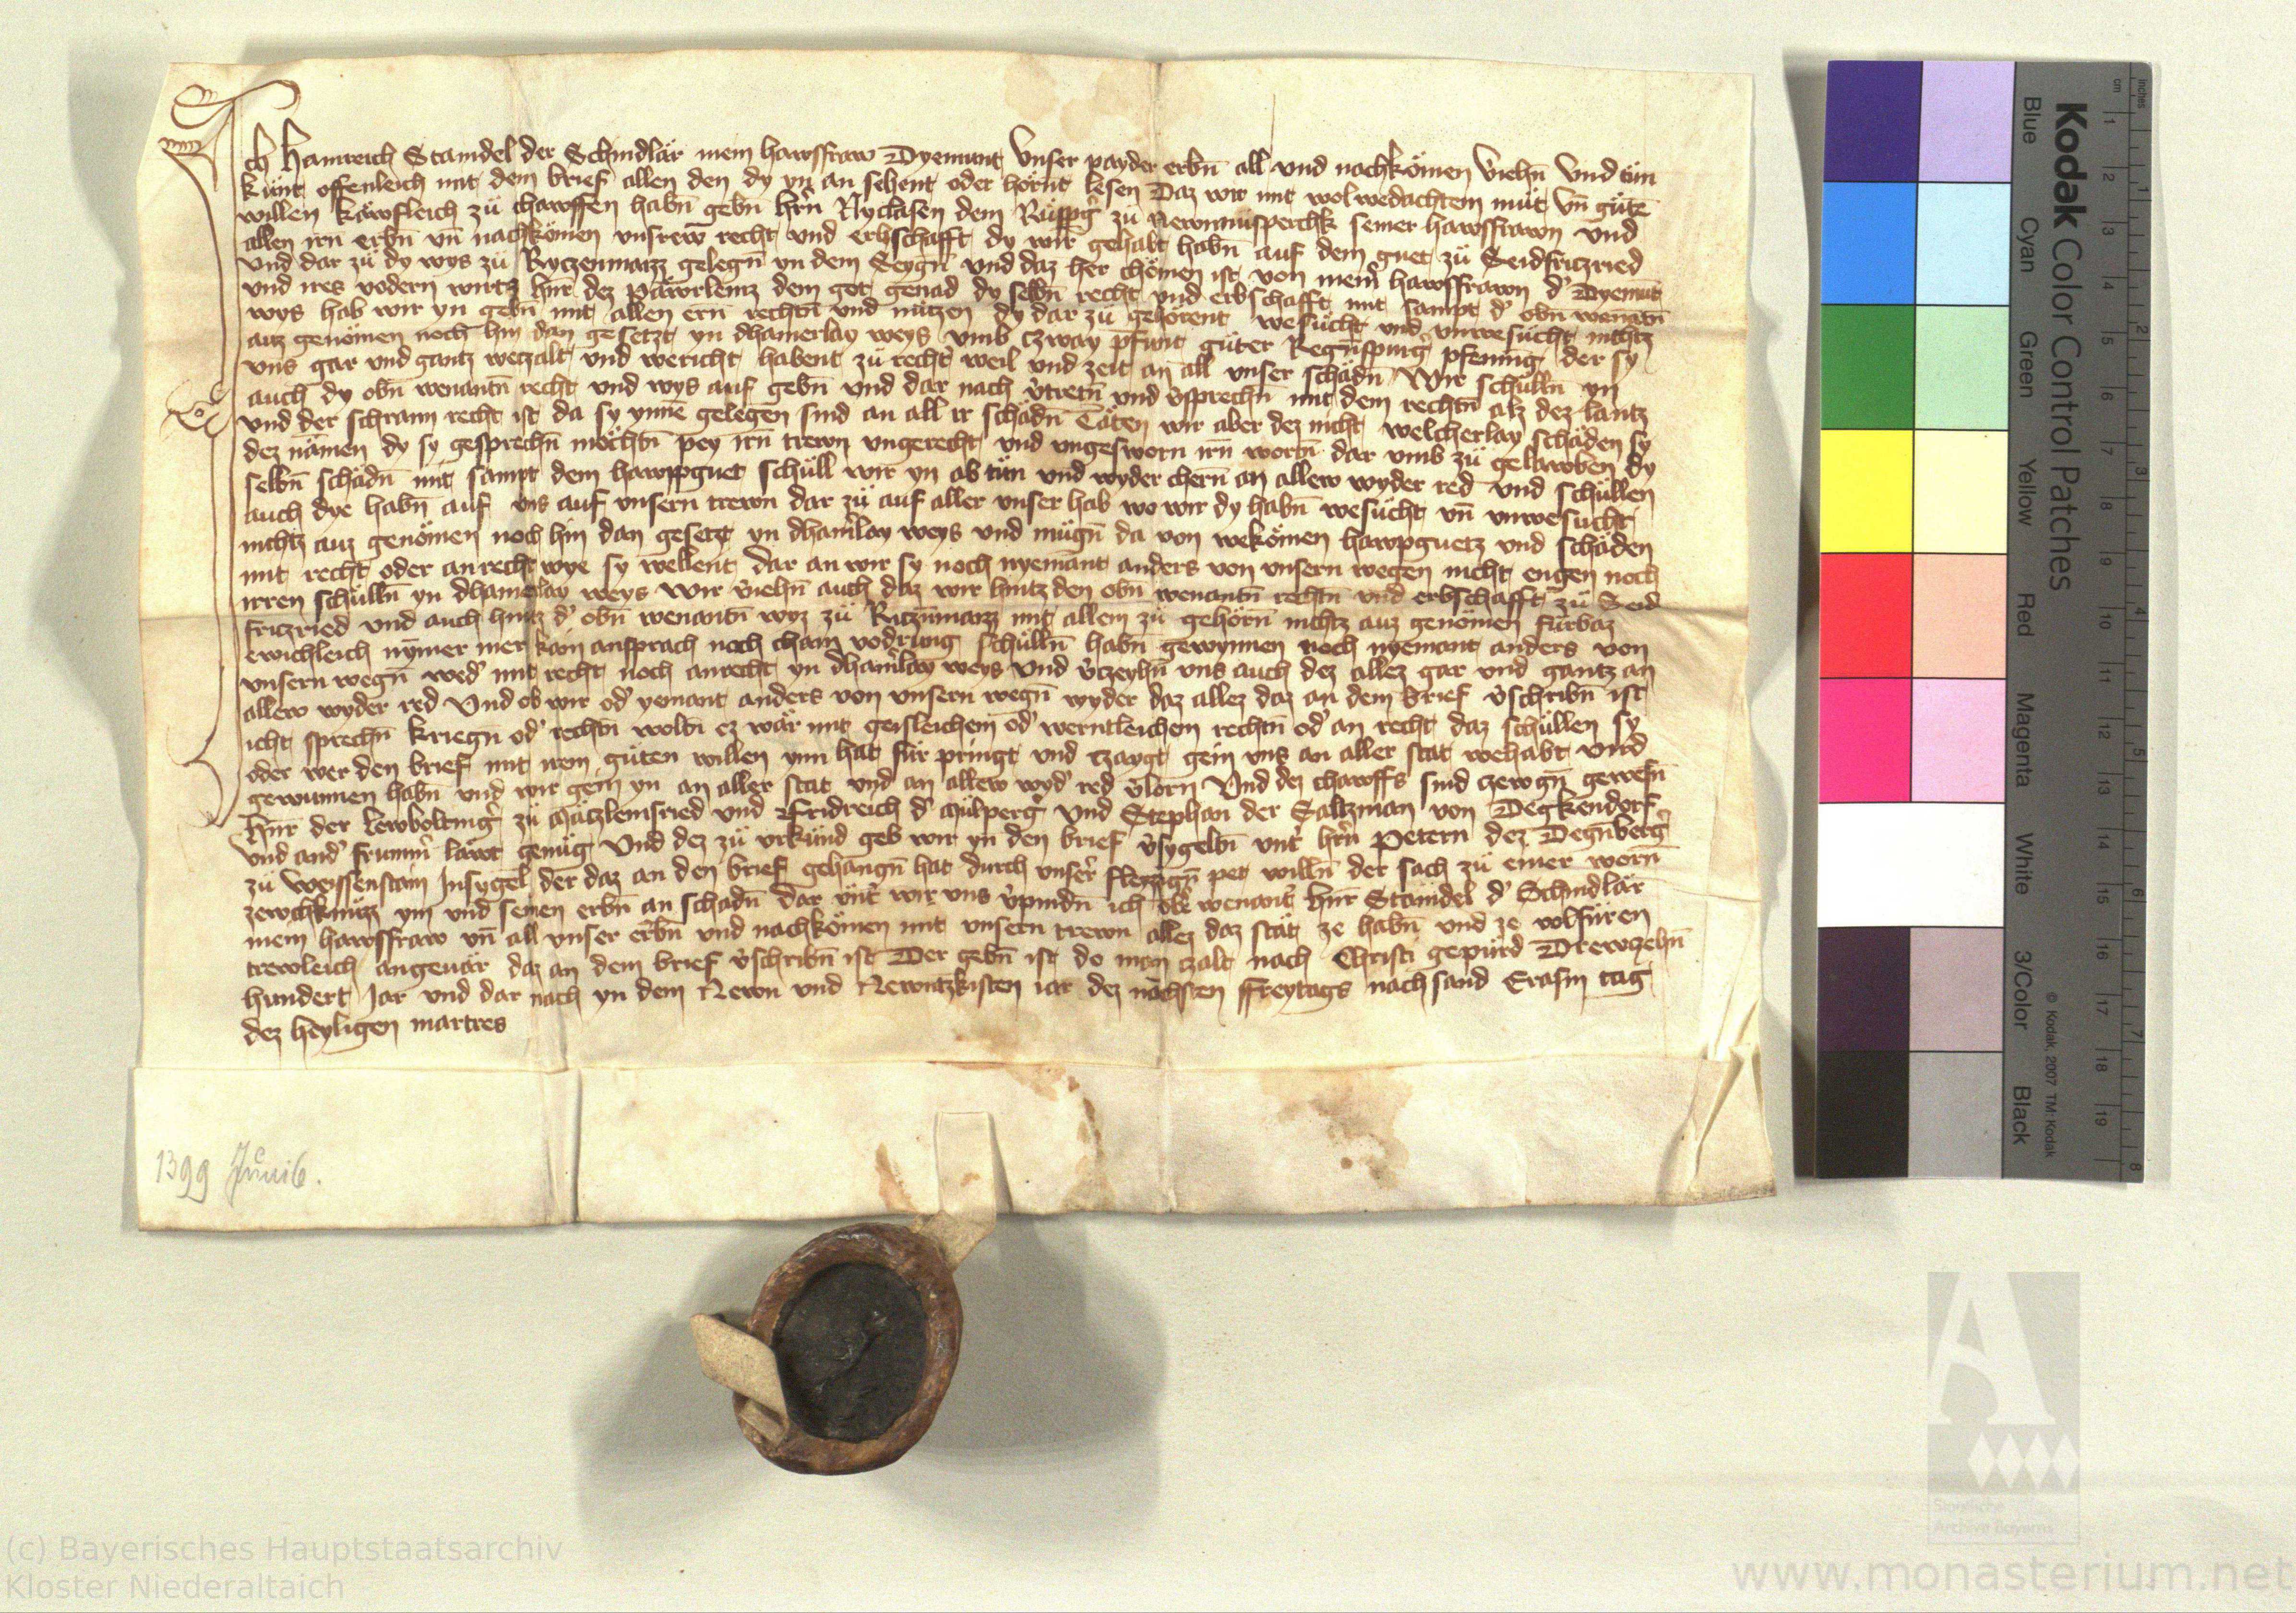 Ich Hainreich Staindel der Schindlär mein hawsfraw Dyemunt Unser payder erbn̄ all und nachkömen v̓iehn̄ Und tün
künt offenleich mit dem brief allen den dy yn an sehent oder hörnt lesen Daz wir mit wolwedachtem müt Un̄ gütē
willen käwfleich zü chawffen habn̄ gebn̄ hr̄n Nyclasen dem Räwspg̓ zu Newnnüsperchk seiner hawsfrawn und
allen irn erbn̄ un̄ nachkömen unsrew̄ recht und erbschafft dy wir gehabt habn̄ auf dem guet zü Seidfriczried
Und dar zü dy wys zü Ryczenmaiz gelegn̄ yn dem Seygn̄ und daz her chömen ist von mein̓ hawsfrawn d̓ Dyemüt
und ires vodern wirtz hnr̄ dez päwrleinz dem got genad dy selbn̄ recht und erbschafft mit sampt d̓ obn̄ wenantn̄
wys hab wir yn gebn̄ mit allen ern̄ rechtn̄ und nützen dy dar zü gehörent wesücht und unwesücht nichtz
auz genömen noch hin dan gesetzt yn dhainerlay weys umb Czway pfunt güter Regnspurg̓ pfening der sy
uns gar und gantz weczalt und wericht habent zü recht weil und zeit an all unser schädn̄ Wir schülln̄ yn
auch dy obn̄ wenantn̄ recht und wys auf gebn̄ und dar nach v̓tretn̄ und v̓sprechn̄ mit dem rechtn̄ alz dez lantz
und der schrann recht ist da sy ynne gelegen sind an all ir schädn̄ Täten wir aber dez nicht welcherlay schäden sy
dez nämen dy sy gesprechn̄ möchtn̄ pey irn̄ trewn ungerecht und ungesworn irn̄ wortn̄ dar umb zü gelawben dy
selbn̄ schädn̄ mit sampt dem hawppguet schüll wir yn ab tün und wyder chern̄ an allew wyder red und schüllen
auch dye habn̄ auf uns auf unsern trewn dar zü auf aller unser hab wo wir dy habn̄ wesücht un̄ unwesucht
nichtz auz genömen noch hin dan gesetzt yn dhain̓lay weys und mügn̄ da von wekömen hawpguetz und schäden
mit recht oder an recht wye sy wellent dar an wir sy noch nyemant anders von unsern wegen nicht engen noch
irren schülln̄ yn dhainerlay weys Wir v̓iehn̄ auch daz wir hintz den obn̄ wenantn̄ rechtn̄ und erbschafft zü Seid
friczried und auch hintz d̓ obn̄ wenantn̄ wyz zü Riczn̄maiz mit allem zü gehörn̄ nichtz auz genömen fürbaz
ewichleich nȳmer mer kain ansprach noch chain vodrung schülln̄ habn̄ gewynnen noch nyemant anders von
unsern wegn̄ wed̓ mit recht noch anrecht yn dhain̓lay weys Und v̓czeyhn̄ uns auch dez allez gar und gantz an
allew wyder red Und ob wir od̓ yemant anders von unsern wegn̄ wyder daz allez daz an dem brief v̓schribn̄ ist
icht sprechn̄ kriegn̄ od̓ rechtn̄ woltn̄ ez wär mit geisleichem od̓ werntleichem rechtn̄ od̓ an recht daz schüllen sy
oder wer den brief mit irem güten willen ynn hat für pringt und czaygt gein uns an aller stat wehabt und
gewunnen habn̄ und wir gein yn an aller stat und an allew wyd̓ red v̓lorn̄ Und dez chawffs sind czewgn̄ gewesn̄
hnr̄ der Lewboltinig̓ zü Mätzleinsried und Fridreich d̓ Mülperg̓ Und Stephan der Saltzman von Degkendorf
Und and̓ frumm̓ läwt genüg Und dez zü urkünd geb wir yn den brief v̓sygeltn̄ unt̓ hr̄n Petern dez Degnberg̓
zü Weissenstain Insygel der daz an den brief gehangn̄ hat durch unser̓ fleyzzign̄ pet willn̄ der sach zü einer worn̄
zewchknüzz ym und seinen erbn̄ an schadn̄ dar unt̓ wir uns v̓pindn̄ ich obē wenant̓ hnr̄ Staindel d̓ Schindlär
mein hawsfraw un̄ all unser erbn̄ und nachkömen mit unsern trewn allez daz stät ze habn̄ und ze volfüren
trewleich angeuär daz an dem brief v̓schribn̄ ist Der gebn̄ ist do man czalt nach Christi gepürd Drewczehn̄
hundert Jar und dar nach yn dem Newn und Newntzkisten iar dez nächsten ffreytags nach sand Erasm tag
dez heyligen martres
1399 Juni 6.
Kodak Color Control Patches
Blue Cyan Green Yellow Red Magenta White 3/Color Black
© Kodak, 2007 TM: Kodak
cm 1 2 3 4 5 6 7 8 9 10 11 12 13 14 15 16 17 18 19
inches 1 2 3 4 5 6 7 8
Staatliche
Archive Bayerns
(c) Bayerisches Hauptstaatsarchiv
Kloster Niederaltaich
www.monasterium.net